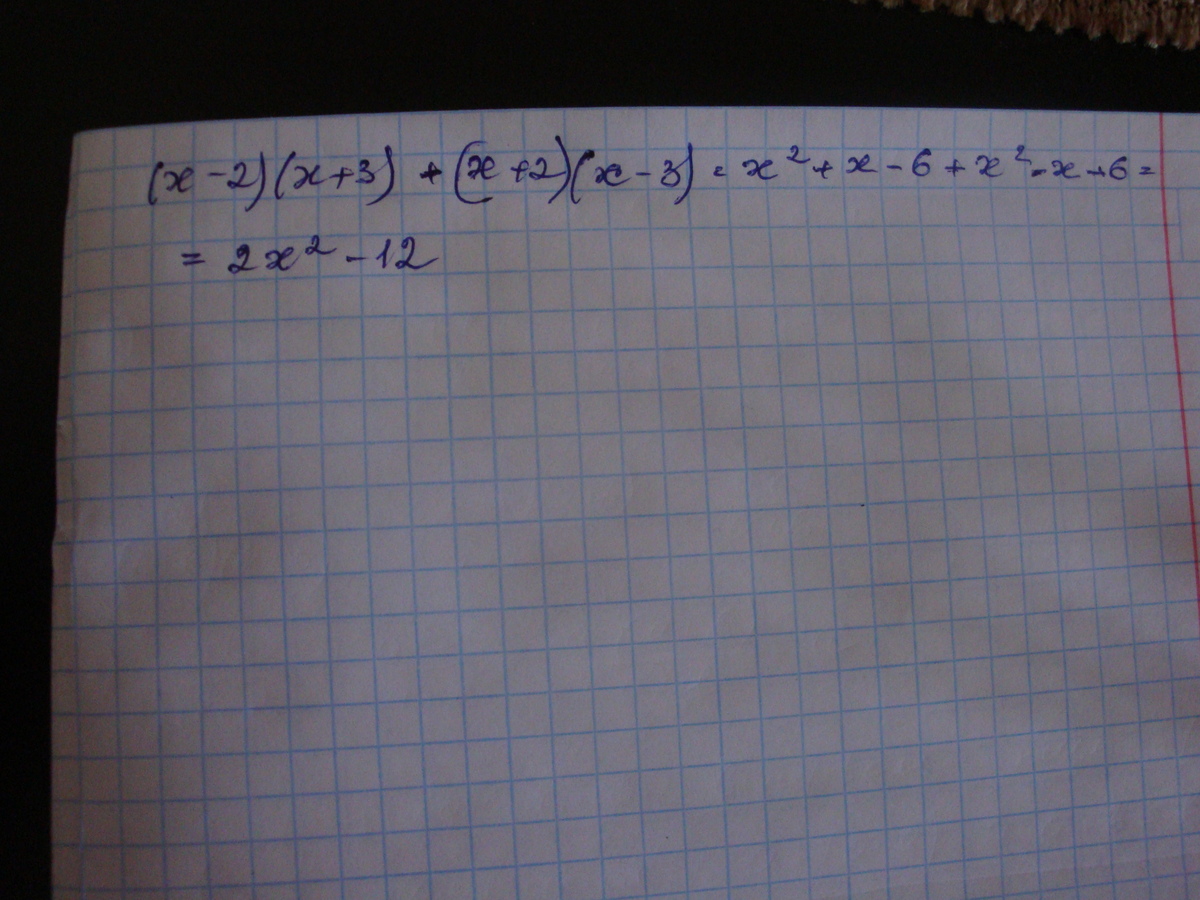 (x-2)(x+3) + (x+2)(x-3) = x² + x - 6 + x² - x + 6 =
= 2x² - 12